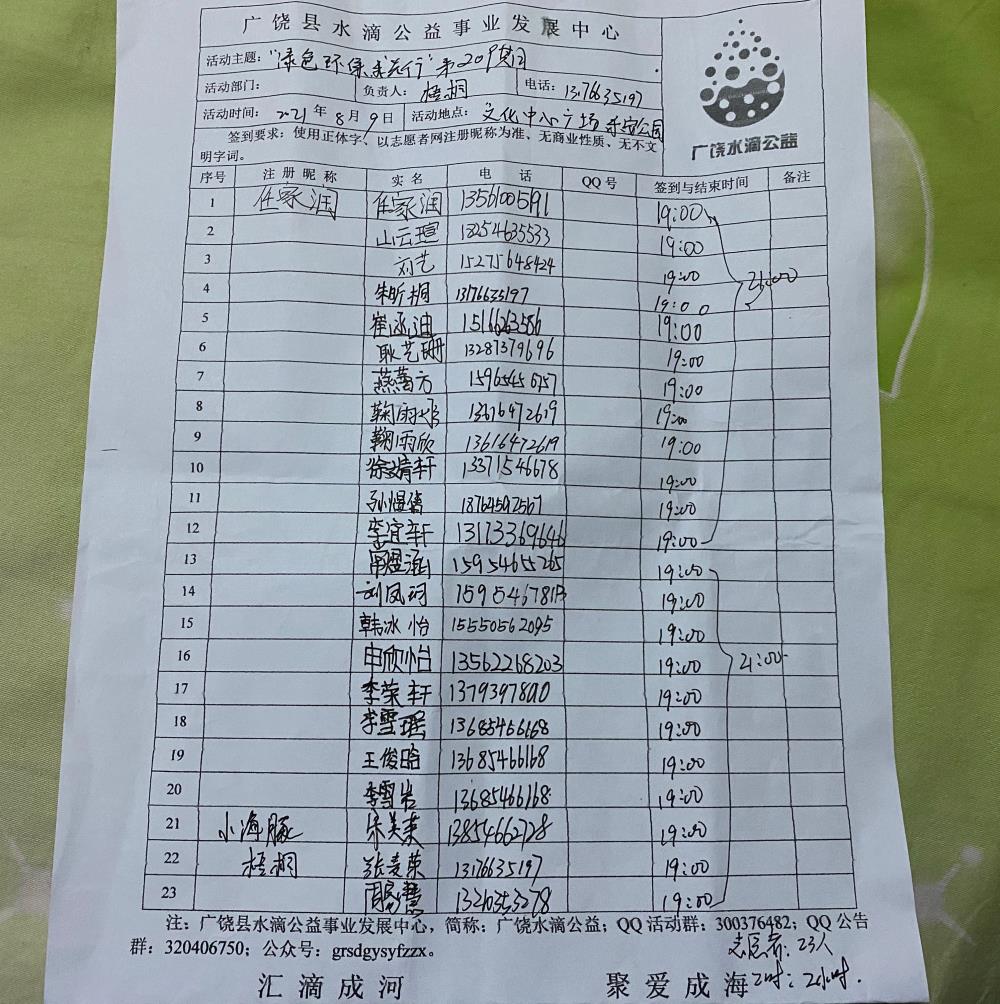 广饶县水滴公益事业发展中心
活动主题:“绿色环保 行”第209期
活动部门: 负责人: 梧桐 电话: 13176635197
活动时间: 2021年8月9日 活动地点: 文化中心广场 乐安公园
签到要求:使用正体字、以志愿者网注册昵称为准、无商业性质、无不文
明字词。
广饶水滴公益
序号 注册昵称 实名 电话 QQ号 签到与结束时间 备注
1 任家润 任家润 1356100591 19:00
2 山云瑄 13254635533 19:00
3 刘艺 15275648424 19:00 21:00
4 朱昕桐 13176635197 19:00
5 崔涵迪 1516263556 19:00
6 耿艺珊 13287379696 19:00
7 燕蕾方 15965456757 19:00
8 鞠雨 13616472619 19:00
9 鞠雨欣 13616472619 19:00
10 徐婧轩 13371546678 19:00
11 孙煜 18764592567 19:00
12 李宜轩 13173369646 19:00
13 煜涵 15954655265 19:00
14 刘凤珂 19:00
15 韩冰怡 15550562095 19:00
16 由欣怡 13562268203 19:00 21:00
17 李荣轩 19:00
18 李雪瑶 13685466168 19:00
19 王俊晗 13685466168 19:00
20 李雪岩 13685466168 19:00
21 小海豚 宋美荣 13854662728 19:00
22 梧桐 张麦荣 13176635197 19:00
23 周慧 19:00
注:广饶县水滴公益事业发展中心,简称:广饶水滴公益;QQ活动群:300376482;QQ公告
群:320406750;公众号:grsdgysyfzzx。
志愿者:23人
汇滴成河 聚爱成海
工时:2小时.